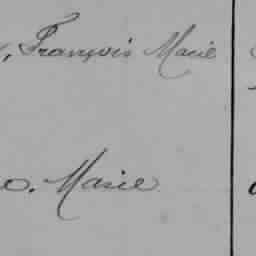 , François Marie
o. Marie